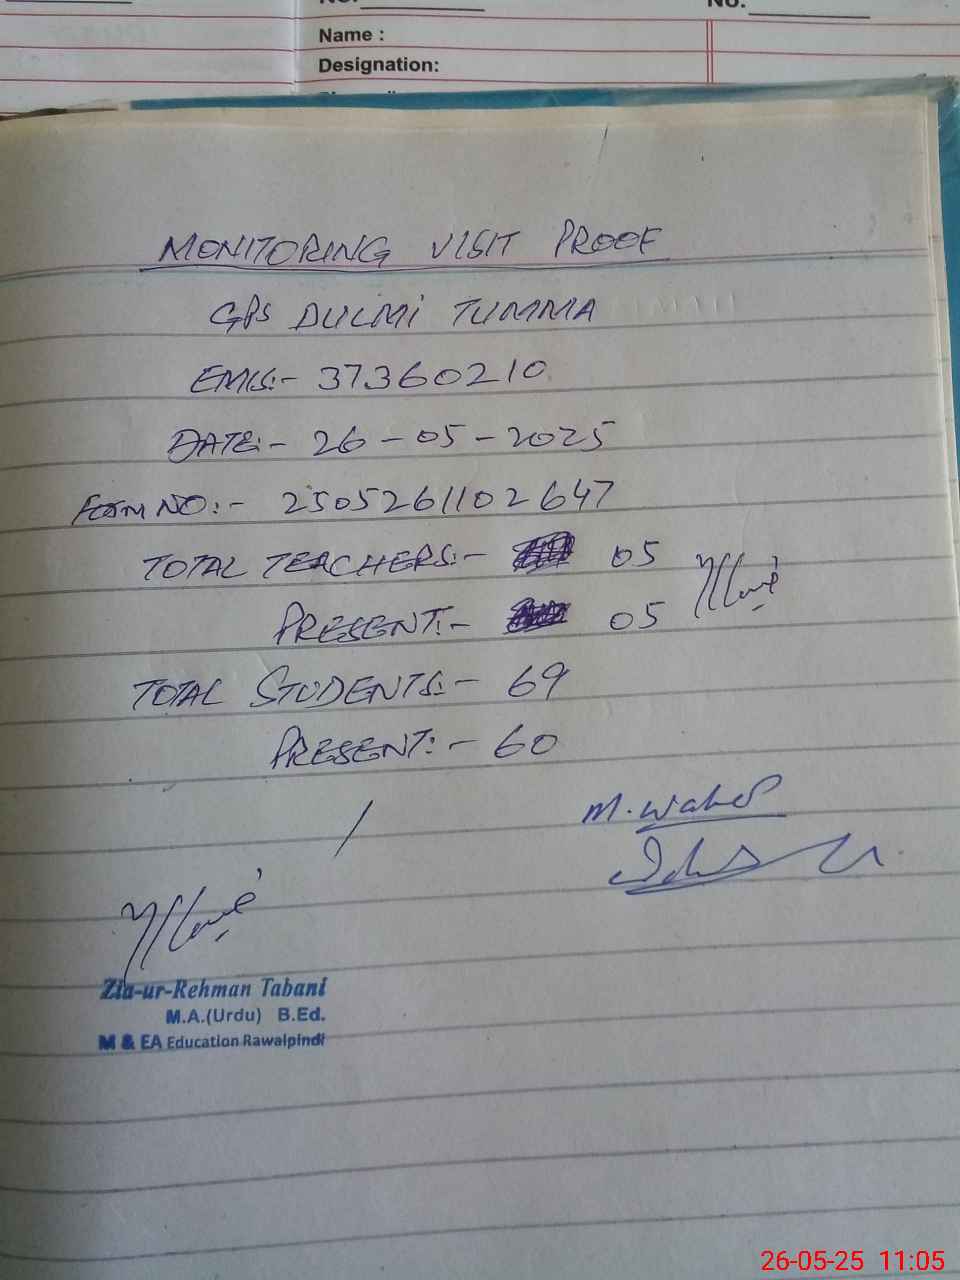 No.
No.
Name :
Designation:
MONITORING VISIT PROOF
GPS DULMI TUMMA
EMIS:- 37360210
DATE:- 26-05-2025
Form NO:- 2505261102647
TOTAL TEACHERS:- 05
PRESENT:- 05
TOTAL STUDENTS:- 69
PRESENT:- 60
M. Waheed
Zia-ur-Rehman Tabani
M.A.(Urdu) B.Ed.
M & EA Education Rawalpindi
26-05-25 11:05